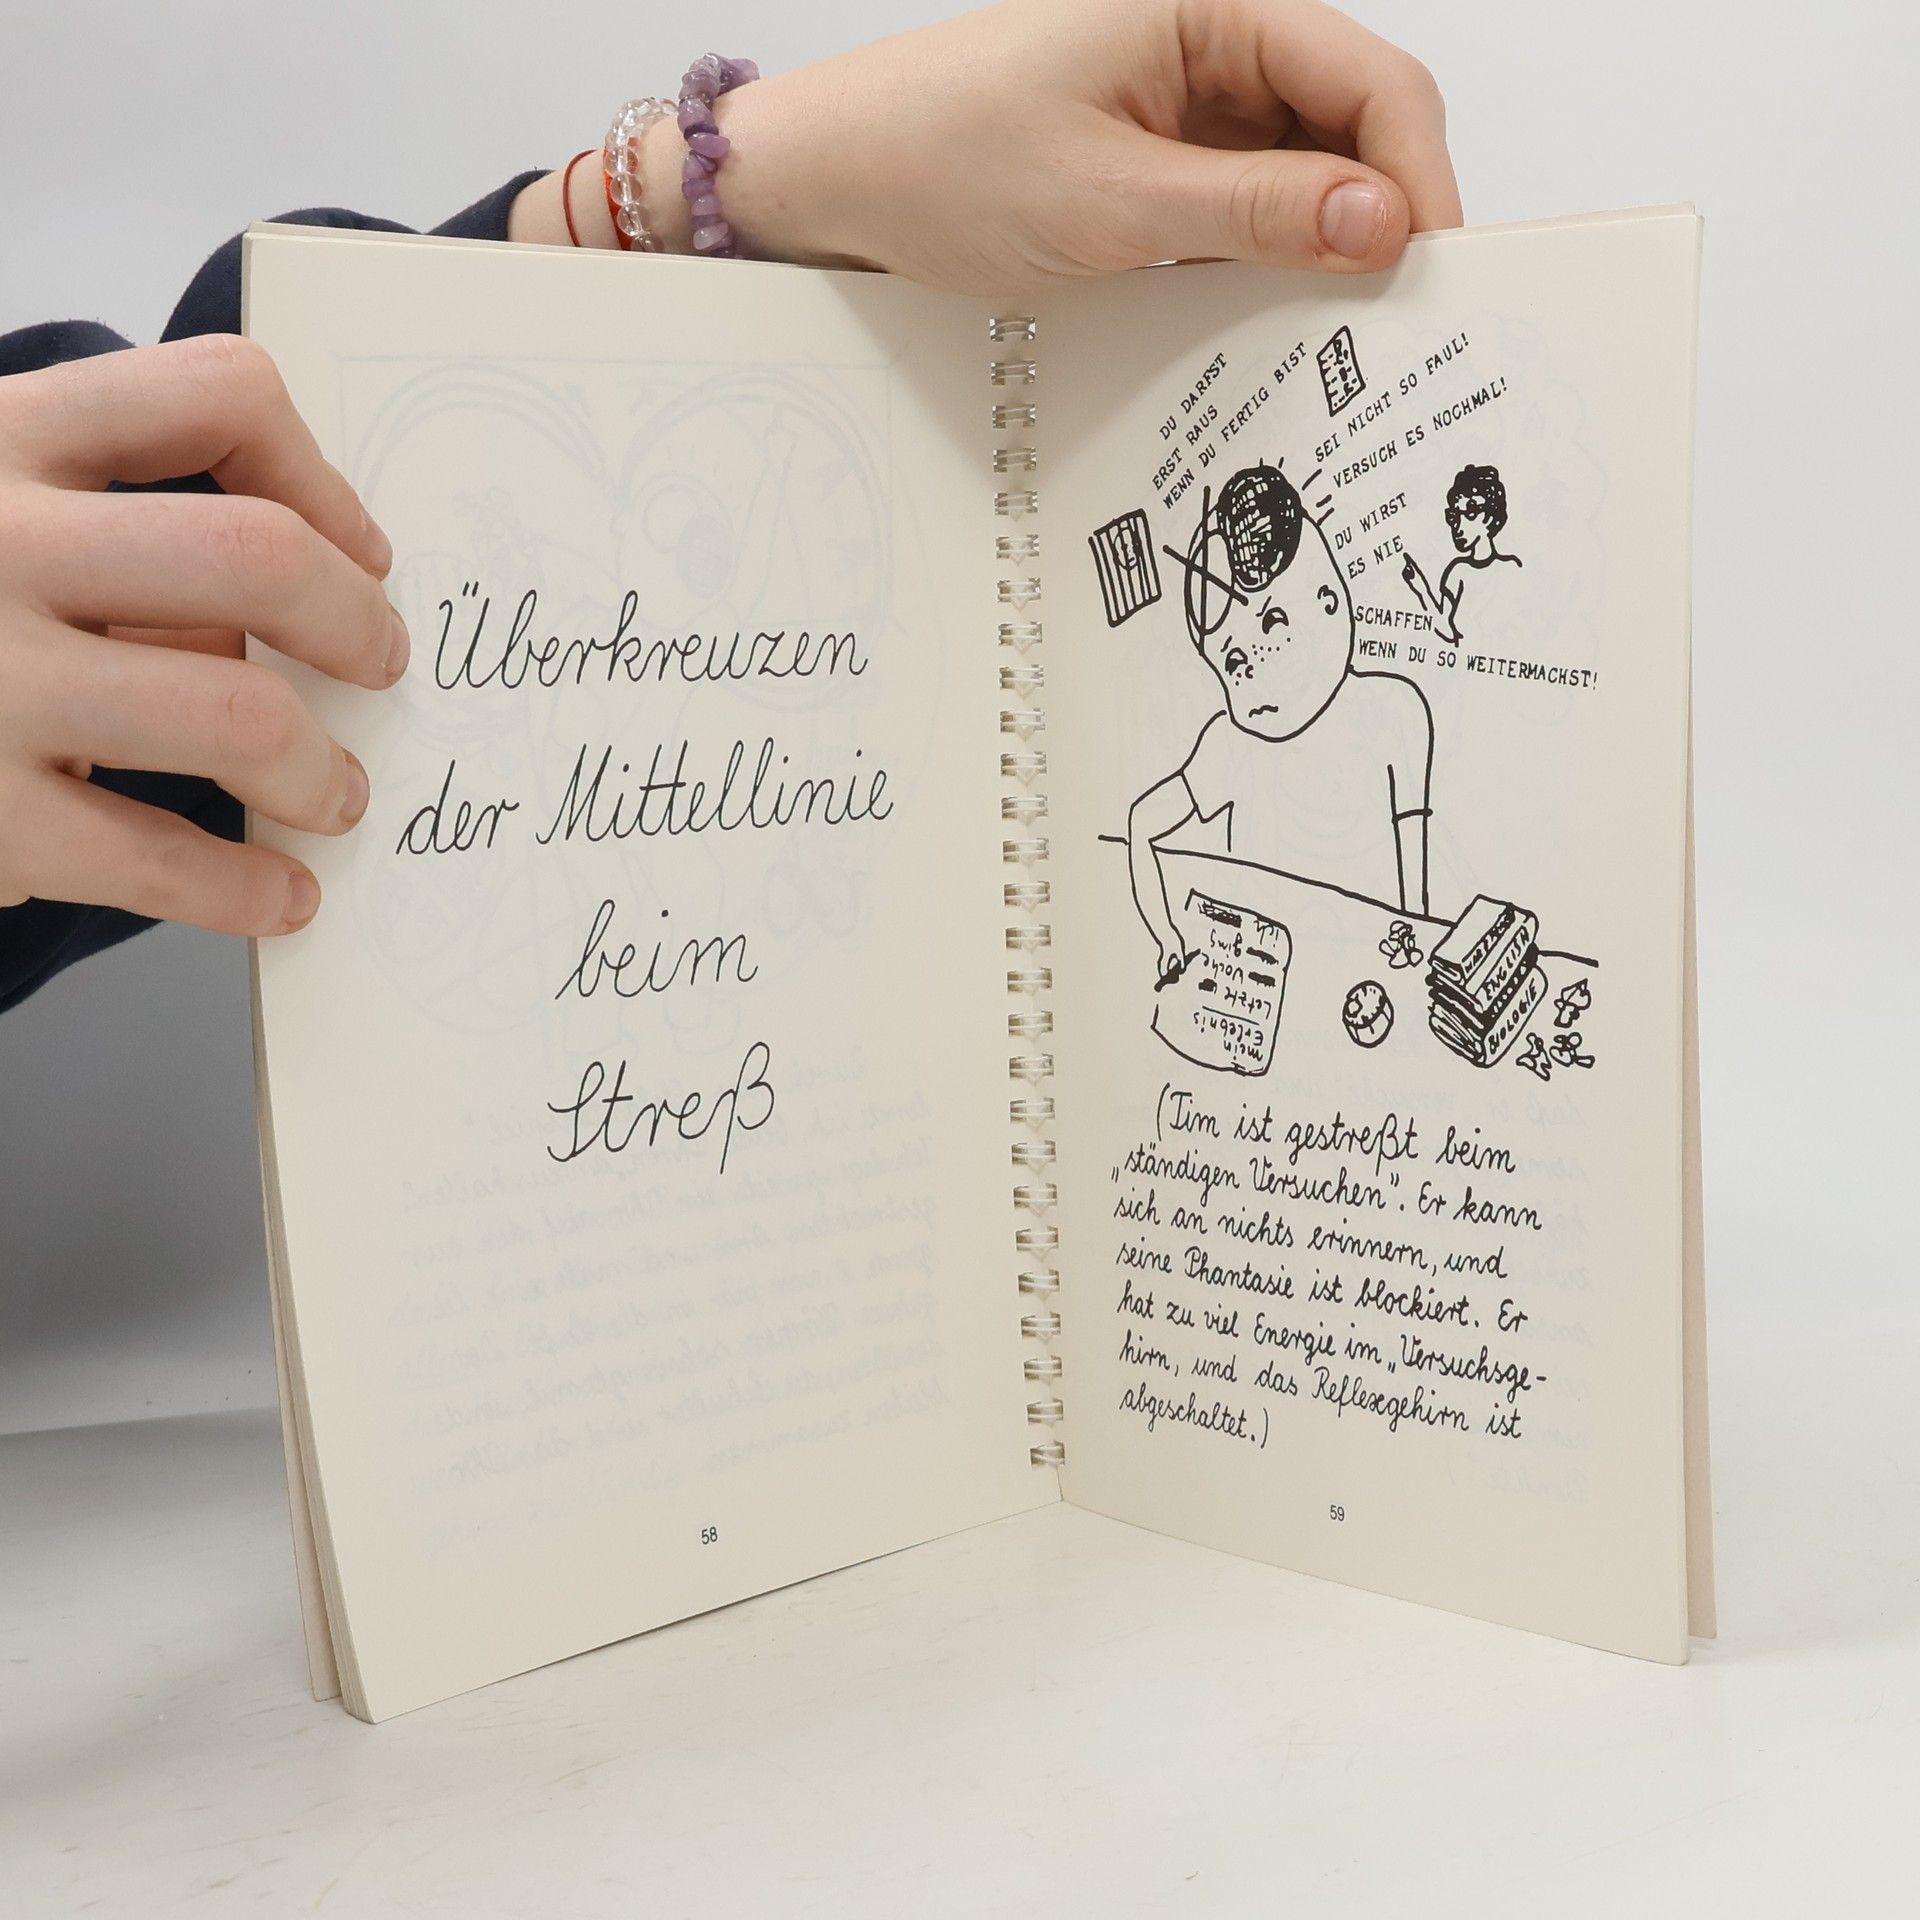 Überkreuzen
der Mittellinie
beim
Streß
58
DU DARFST
ERST RAUS
WENN DU FERTIG BIST
SEI NICHT SO FAUL!
VERSUCH ES NOCHMAL!
DU WIRST
ES NIE
SCHAFFEN
WENN DU SO WEITERMACHST!
mein
Erlebnis
Letzte
Woche
ging
ich
ENGLISH
BIOLOGIE
(Tim ist gestreßt beim
„ständigen Versuchen”. Er kann
sich an nichts erinnern, und
seine Phantasie ist blockiert. Er
hat zu viel Energie im „Versuchsge-
hirn, und das Reflexgehirn ist
abgeschaltet.)
59